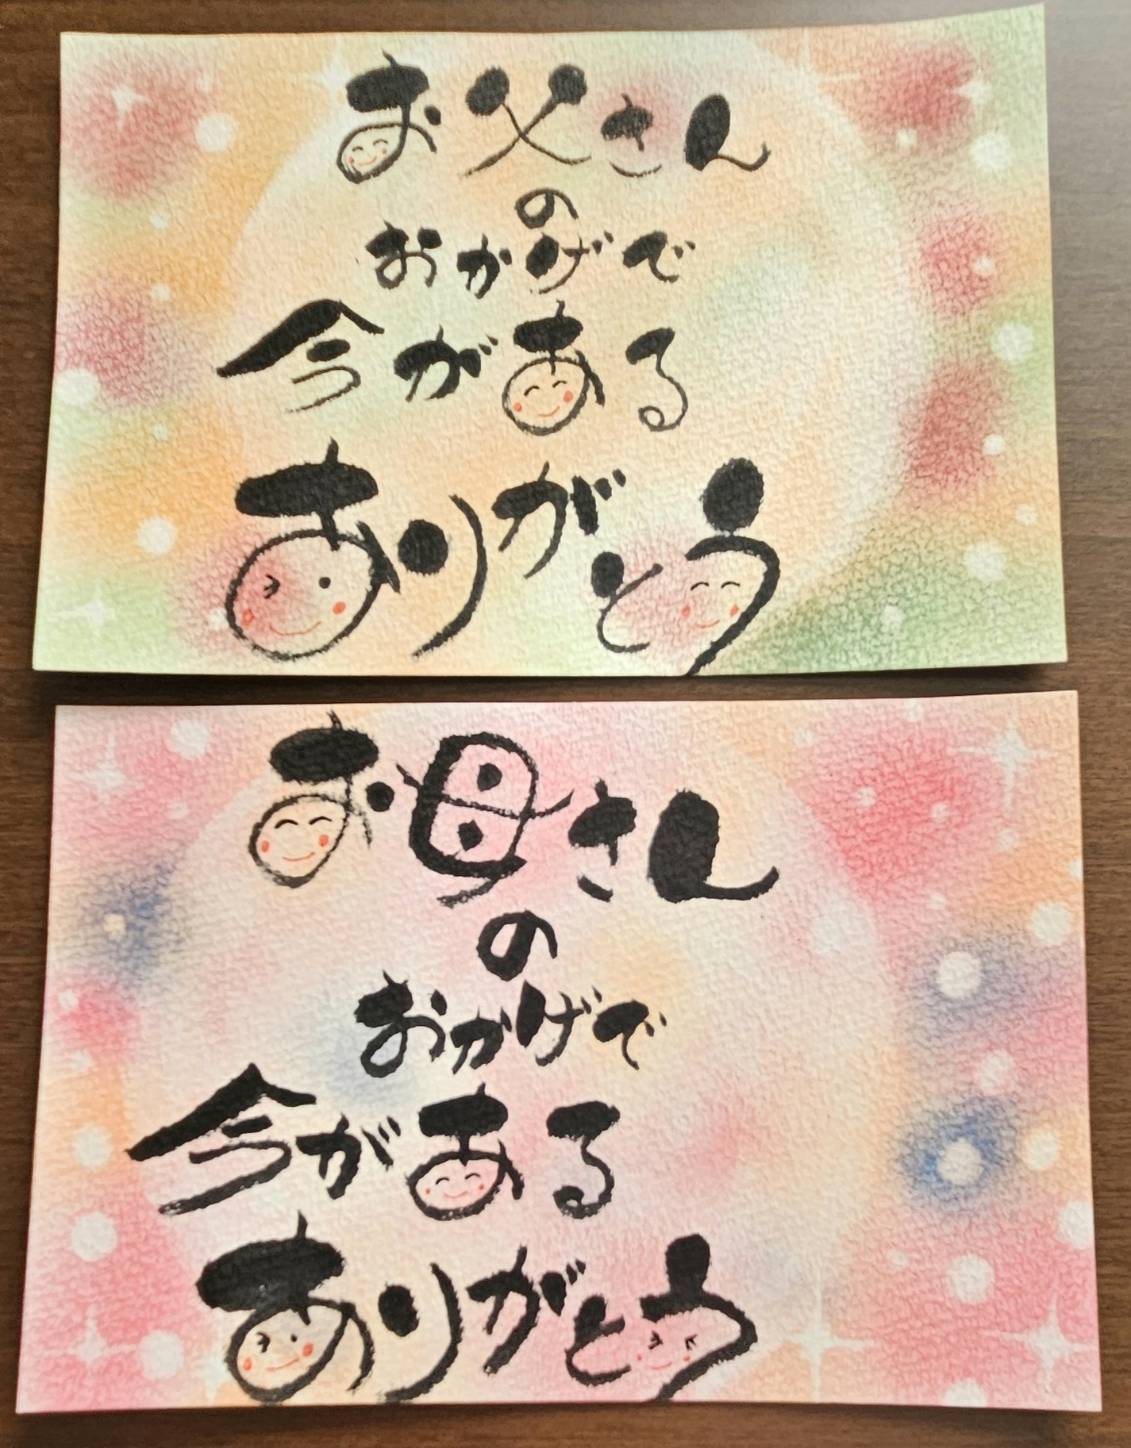 お父さん
の
おかげで
今がある
ありがとう
お母さん
の
おかげで
今がある
ありがとう